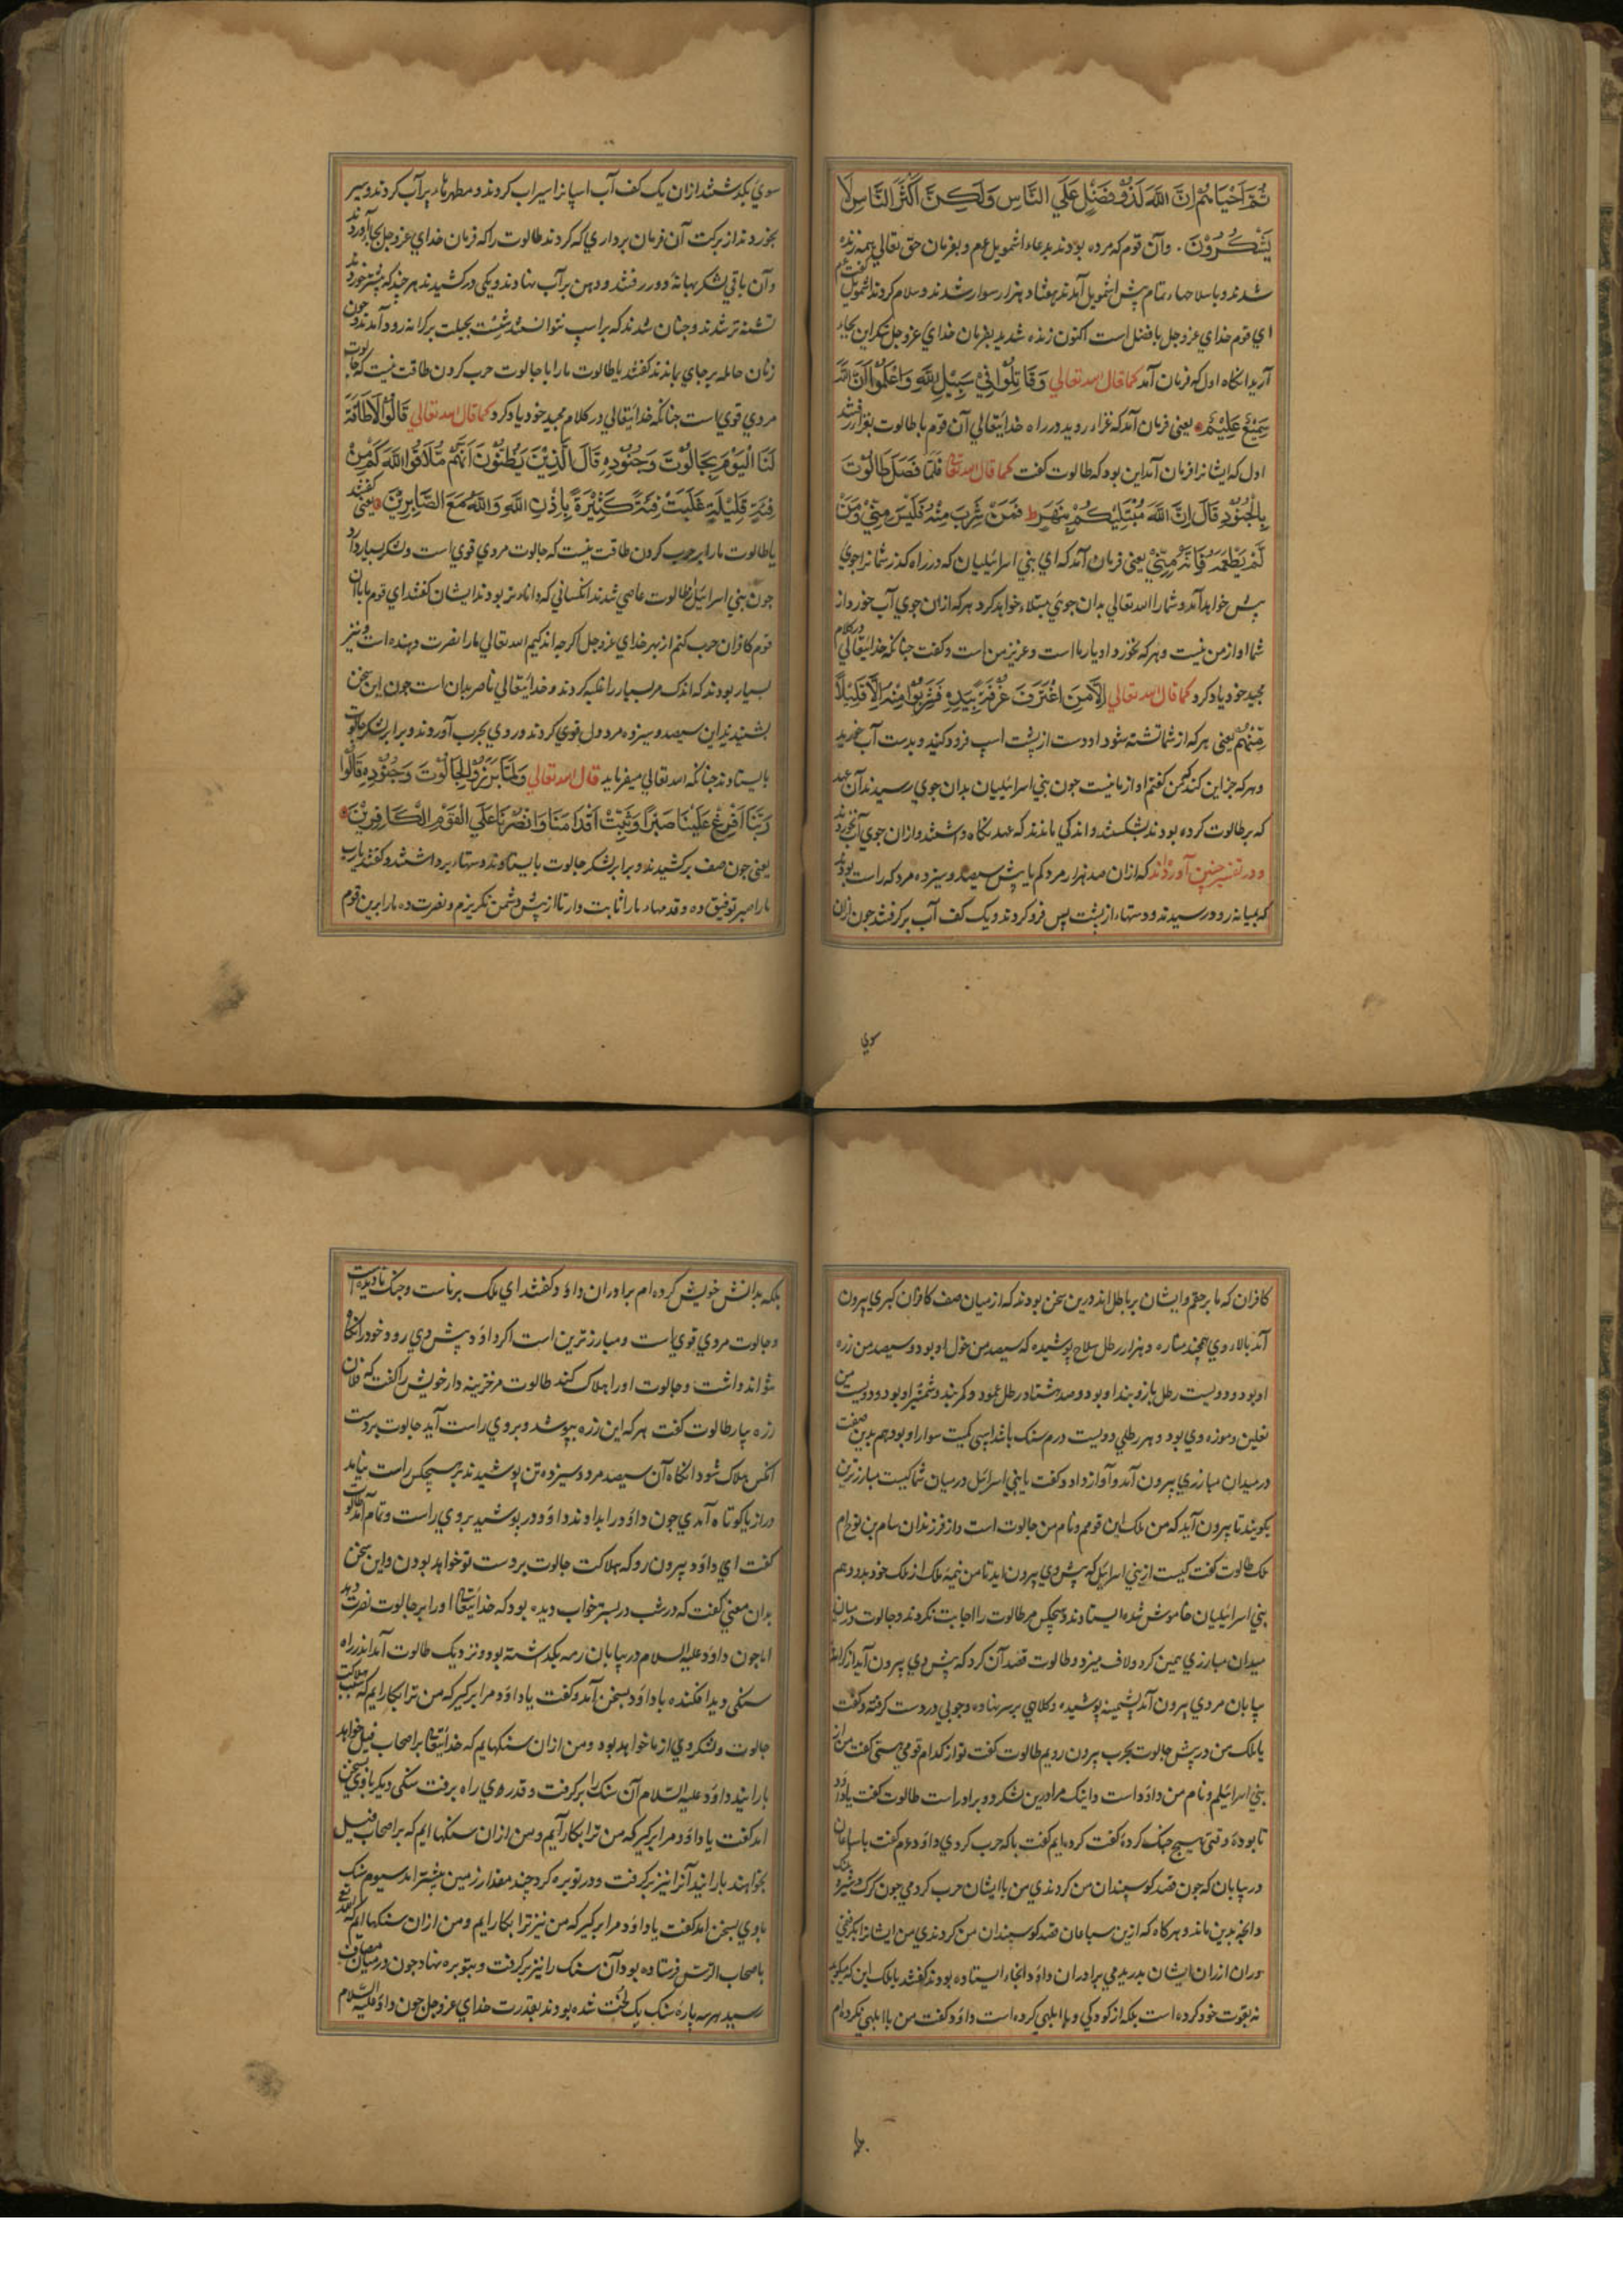 ثُمَّ اَحْيَاهُمْ اِنَّ اللّٰهَ لَذُوْ فَضْلٍ عَلَي النَّاسِ وَلٰكِنَّ اَكْثَرَ النَّاسِ لَا
يَشْكُرُوْنَ . وآن قوم که مرده بودند بدعاء اشمویل عم و بفرمان حق تعالي همه زنده
شدند و با سلاحها تمام پیش اشمویل آمدند هفتاد هزار سوار شدند و سلام کردند اشمویل عم گفت
اي قوم خداي عزوجل بافضل است اکنون زنده شدید بفرمان خداي عزوجل شکر این بجاي
آرید انکاه اول که فرمان آمد کما قال الله تعالي وَقَاتِلُوْا فِيْ سَبِيْلِ اللّٰهِ وَاعْلَمُوْا اَنَّ اللّٰهَ
سَمِيْعٌ عَلِيْمٌ یعني فرمان آمد که غزا روید در راه خدایتعالي آن قوم با طالوت بغزا رفتند
اول که ایشانرا فرمان آمد این بود که طالوت کفت کما قال الله تعالی فَلَمَّا فَصَلَ طَالُوْتُ
بِالْجُنُوْدِ قَالَ اِنَّ اللّٰهَ مُبْتَلِيْكُمْ بِنَهَرٍ ط فَمَنْ شَرِبَ مِنْهُ فَلَيْسَ مِنِّيْ وَمَنْ
لَمْ يَطْعَمْهُ فَاِنَّهُ مِنِّيْ یعني فرمان آمد که اي بني اسرائیلیان که در راه کذر شمانرا جوي
پیش خواهد آمد و شمارا الله تعالي بدان جوي مبتلا خواهد کرد هرکه ازان جوي آب خورد از
شما او از من نیست و هرکه نخورد او یار ما است و عزیز من است و کفت چنانکه خدایتعالي در کلام
مجید خود یاد کرد کما قال الله تعالي اِلَّا مَنِ اغْتَرَفَ غُرْفَةً بِيَدِهِ فَشَرِبُوْا مِنْهُ اِلَّا قَلِيْلًا
مِنْهُمْ یعني هرکه از شما تشنه شود او دست از پشت اسپ فرود کنید و بدست آب خورید
و هرکه جز این کند که من کفتم او از ما نیست جون بني اسرائیلیان بدان جوي رسیدند آن عهد
که بر طالوت کرده بودند بشکستند و اندکي ماندند که عهد نکاه داشتند و ازان جوي آب نخوردند
و در تفسیر چنین آورده‌اند که ازان صد هزار مرد کم یا بیش سیصد و سیزده مرد که راست بودند
که بمیانه رود رسیدند و دستها از پشت اسپ فرو کردند و یک کف آب برکرفتند جون ازان
سوي
سوي بکذشتند ازان یک کف آب اسپانرا سیراب کردند و مطهرها پرآب کردند و سیر
بخوردند از برکت آن فرمان برداري که کردند طالوت را که فرمان خداي عزوجل بجا آوردند
و آن باقي لشکر بهانه دور رفتند و دهن بر آب نهادند و یکي در کشیدند هر چند که بیشتر خوردند
تشنه تر شدند و چنان شدند که بر اسپ نتوانستند نشست بحیلت بر کرانه رود آمدند و چون
زنان حامله بر جاي ماندند کفتند یا طالوت مارا با جالوت حرب کردن طاقت نیست که جالوت
مردي قوي است چنانکه خدایتعالي در کلام مجید خود یاد کرد کما قال الله تعالي قَالُوْا لَا طَاقَةَ
لَنَا الْيَوْمَ بِجَالُوْتَ وَجُنُوْدِهِ قَالَ الَّذِيْنَ يَظُنُّوْنَ اَنَّهُمْ مُلَاقُوا اللّٰهِ كَمْ مِنْ
فِئَةٍ قَلِيْلَةٍ غَلَبَتْ فِئَةً كَثِيْرَةً بِاِذْنِ اللّٰهِ وَاللّٰهُ مَعَ الصَّابِرِيْنَ یعني کفتند
یا طالوت مارا بر حرب کردن طاقت نیست که جالوت مردي قوي است و لشکر بسیار دارد
جون بني اسرائیل بطالوت عاصي شدند انکساني که داناتر بودند ایشان کفتند اي قوم ما با آن
قوم کافران حرب کنیم از بهر خداي عزوجل اکرچه اندکیم الله تعالي مارا نصرت دهنده است و نیز
بسیار بودند که اندک مر بسیار را غلبه کردند و خدایتعالي ناصر بدان است جون این سخن
بشنیدند این سیصد و سیزده مرد دل قوي کردند و روي بحرب آوردند و برابر لشکر جالوت
بایستادند چنانکه الله تعالي میفرماید قال الله تعالي وَلَمَّا بَرَزُوْا لِجَالُوْتَ وَجُنُوْدِهِ قَالُوْا
رَبَّنَا اَفْرِغْ عَلَيْنَا صَبْرًا وَثَبِّتْ اَقْدَامَنَا وَانْصُرْنَا عَلَي الْقَوْمِ الْكَافِرِيْنَ
یعني جون صف برکشیدند و برابر لشکر جالوت بایستادند و دستها برداشتند و کفتند یارب
مارا صبر توفیق ده و قدمهاء مارا ثابت دار تا از پیش دشمن نکریزیم و نصرت ده مارا برین قوم
کافران که ما بر حقیم و ایشان بر باطل اند درین سخن بودند که از میان صف کافران کبري بیرون
آمد بالاء وي همچند مناره و هزار رطل سلاح پوشیده که سیصد من خول او بود و سیصد من زره
او بود و دویست رطل بازوبند او بود و صد هشتاد رطل عمود و کمربند و شمشیر او بود و دویست من
نعلین و موزه وي بود و هر رطلي دویست درم سنک باشد اسپي کمیت سوار او بود هم بدین صفت
در میدان مبارزي بیرون آمد و آواز داد و کفت یا بني اسرائیل در میان شما کیست مبارزترین
بکویند تا بیرون آید که من ملک این قومم و نام من جالوت است و از فرزندان سام بن نوح ام
ملک طالوت کفت کیست از بني اسرائیل که پیش وي بیرون اید تا من نیمه ملک از ملک خود بدو دهم
بني اسرائیلیان خاموش شده ایستادند و هیچکس مر طالوت را اجابت نکردند و جالوت در میان
میدان مبارزي همین کرد و لاف میزد و طالوت قصد آن کرد که پیش وي بیرون آید از کرانه
بیابان مردي بیرون آمد پشمینه پوشیده و کلاهي بر سر نهاده و چوبي در دست کرفته و کفت
یا ملک من در پیش جالوت بحرب بیرون رویم طالوت کفت تو از کدام قومي هستي کفت من از
بني اسرائیلم و نام من داؤد است و اینک مرا درین لشکر دو برادر است طالوت کفت یا داؤد
تا بوده وقتي هیچ جنک کرده کفت کرده‌ایم کفت با که حرب کردي داؤد عم کفت با سباعان
در بیابان که جون قصد کوسپندان من کردندي من با ایشان حرب کردمي جون کرک و شیر و پلنک
و انچه بدین ماند و هرکاه که ازین سباعان قصد کوسپندان من کردندي من ایشانرا بکرفتمي
و ران از ران ایشان بدریدمي برادران داؤد انجاء ایستاده بودند کفتند یا ملک این که میکوید
نه بقوت خود کرده است بلکه از کودکي و یا ابلهي کرده است داؤد کفت من با ابلهي نکرده‌ام
بلکه
بلکه بدانش خویش کرده‌ام برادران داؤد کفتند اي ملک برناست و جنک نادیده است
و جالوت مردي قوي است و مبارزترین است اکر داؤد پیش وي رود خود را نکاه
نتواند داشت و جالوت اورا هلاک کند طالوت مر خزینه دار خویش را کفت که فلان
زره بیار طالوت کفت هرکه این زره بپوشد و بروي راست آید جالوت بر دست
آنکس هلاک شود انکاه آن سیصد مرد و سیزده تن پوشیدند بر هیچکس راست نیامد
دراز یا کوتاه آمدي جون داؤد را بدادند داؤد در پوشید بروي راست و تمام آمد طالوت
کفت اي داؤد بیرون رو که هلاکت جالوت بر دست تو خواهد بودن و این سخن
بدان معني کفت که در شب در بستر خواب دیده بود که خدایتعا اورا بر جالوت نصرت دهد
اما جون داؤد علیه السلام در بیابان رمه بکذاشته بود و نزدیک طالوت آمد اندر راه
سنکي دید افکنده با داؤد بسخن آمد و کفت یا داؤد مرا برکیر که من ترا بکار ایم که سبب هلاکت
جالوت و لشکر وي از ما خواهد بود و من ازان سنکهایم که خدایتعا بر اصحاب فیل خواهد
بارانید داؤد علیه السلام آن سنک را برکرفت و قدري راه برفت سنکي دیکر با وي بسخن
امد کفت یا داؤد مرا برکیر که من ترا بکار آیم و من ازان سنکها ایم که بر اصحاب فیل
بخواهند بارانید آنرا نیز برکرفت و در توبره کرد چند مقدار زمین پیشتر امد سیوم سنک
با وي بسخن امد کفت یا داؤد مرا برکیر که من نیز ترا بکار ایم و من ازان سنکها ایم که
باصحاب الرس فرستاده بود آن سنک را نیز برکرفت و بتوبره نهاد جون در میان مصاف
رسید هر سه پاره سنک یک لخت شده بودند بقدرت خداي عزوجل جون داؤد علیه السلام